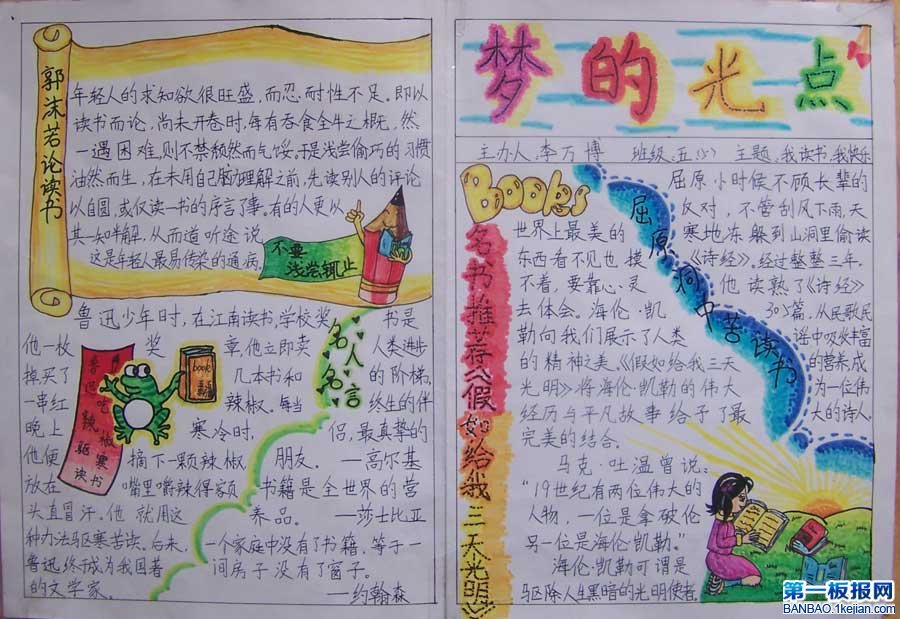 郭沫若论读书
年轻人的求知欲很旺盛，而忍耐性不足。即以
读书而论，尚未开卷时，每有吞食全牛之概，然
一遇困难，则不禁颓然而气馁，于是浅尝偷巧的习惯
油然而生，在未用自己脑力理解之前，先读别人的评论
以自圆，或仅读一书的序言了事。有的人更以
其一知半解，从而道听途说
这是年轻人最易传染的通病。
不要
浅尝辄止
鲁迅少年时，在江南读书，学校奖
他一枚奖章，他立即卖
掉买了几本书和
一串红辣椒。每当
晚上寒冷时，
他便摘下一颗辣椒，
放在嘴里嚼辣得客页
头直冒汗。他就用这
种办法驱寒苦读。后来，
鲁迅终于成为我国著
的文学家。
鲁迅吃辣椒驱寒读书
book
名人名言
书是
人类进步
的阶梯，
终生的伴
侣，最真挚的
朋友。—高尔基
书籍是全世界的营
养品。—莎士比亚
一个家庭中没有了书籍，等于一
间房子没有了窗子。
—约翰森
梦的光点
主办人：李万博 班级：五（5） 主题：我读书，我快乐
Books
名书推荐《假如给我三天光明》
世界上最美的
东西看不见也摸
不着，要靠心灵
去体会。海伦·凯
勒向我们展示了人类
的精神之美。《假如给我三天
光明》将海伦·凯勒的伟大
经历与平凡故事给予了最
完美的结合。
马克·吐温曾说：
“19世纪有两位伟大的
人物，一位是拿破伦
另一位是海伦·凯勒。”
海伦·凯勒可谓是
驱除人生黑暗的光明使者。
屈原洞中苦读书
屈原小时候不顾长辈的
反对，不管刮风下雨，天
寒地冻躲到山洞里偷读
《诗经》。经过整整三年，
他读熟了《诗经》
305篇，从民歌民
谣中吸收丰富
的营养成
为一位伟
大的诗人。
第一板报网
BANBAO.1kejian.com